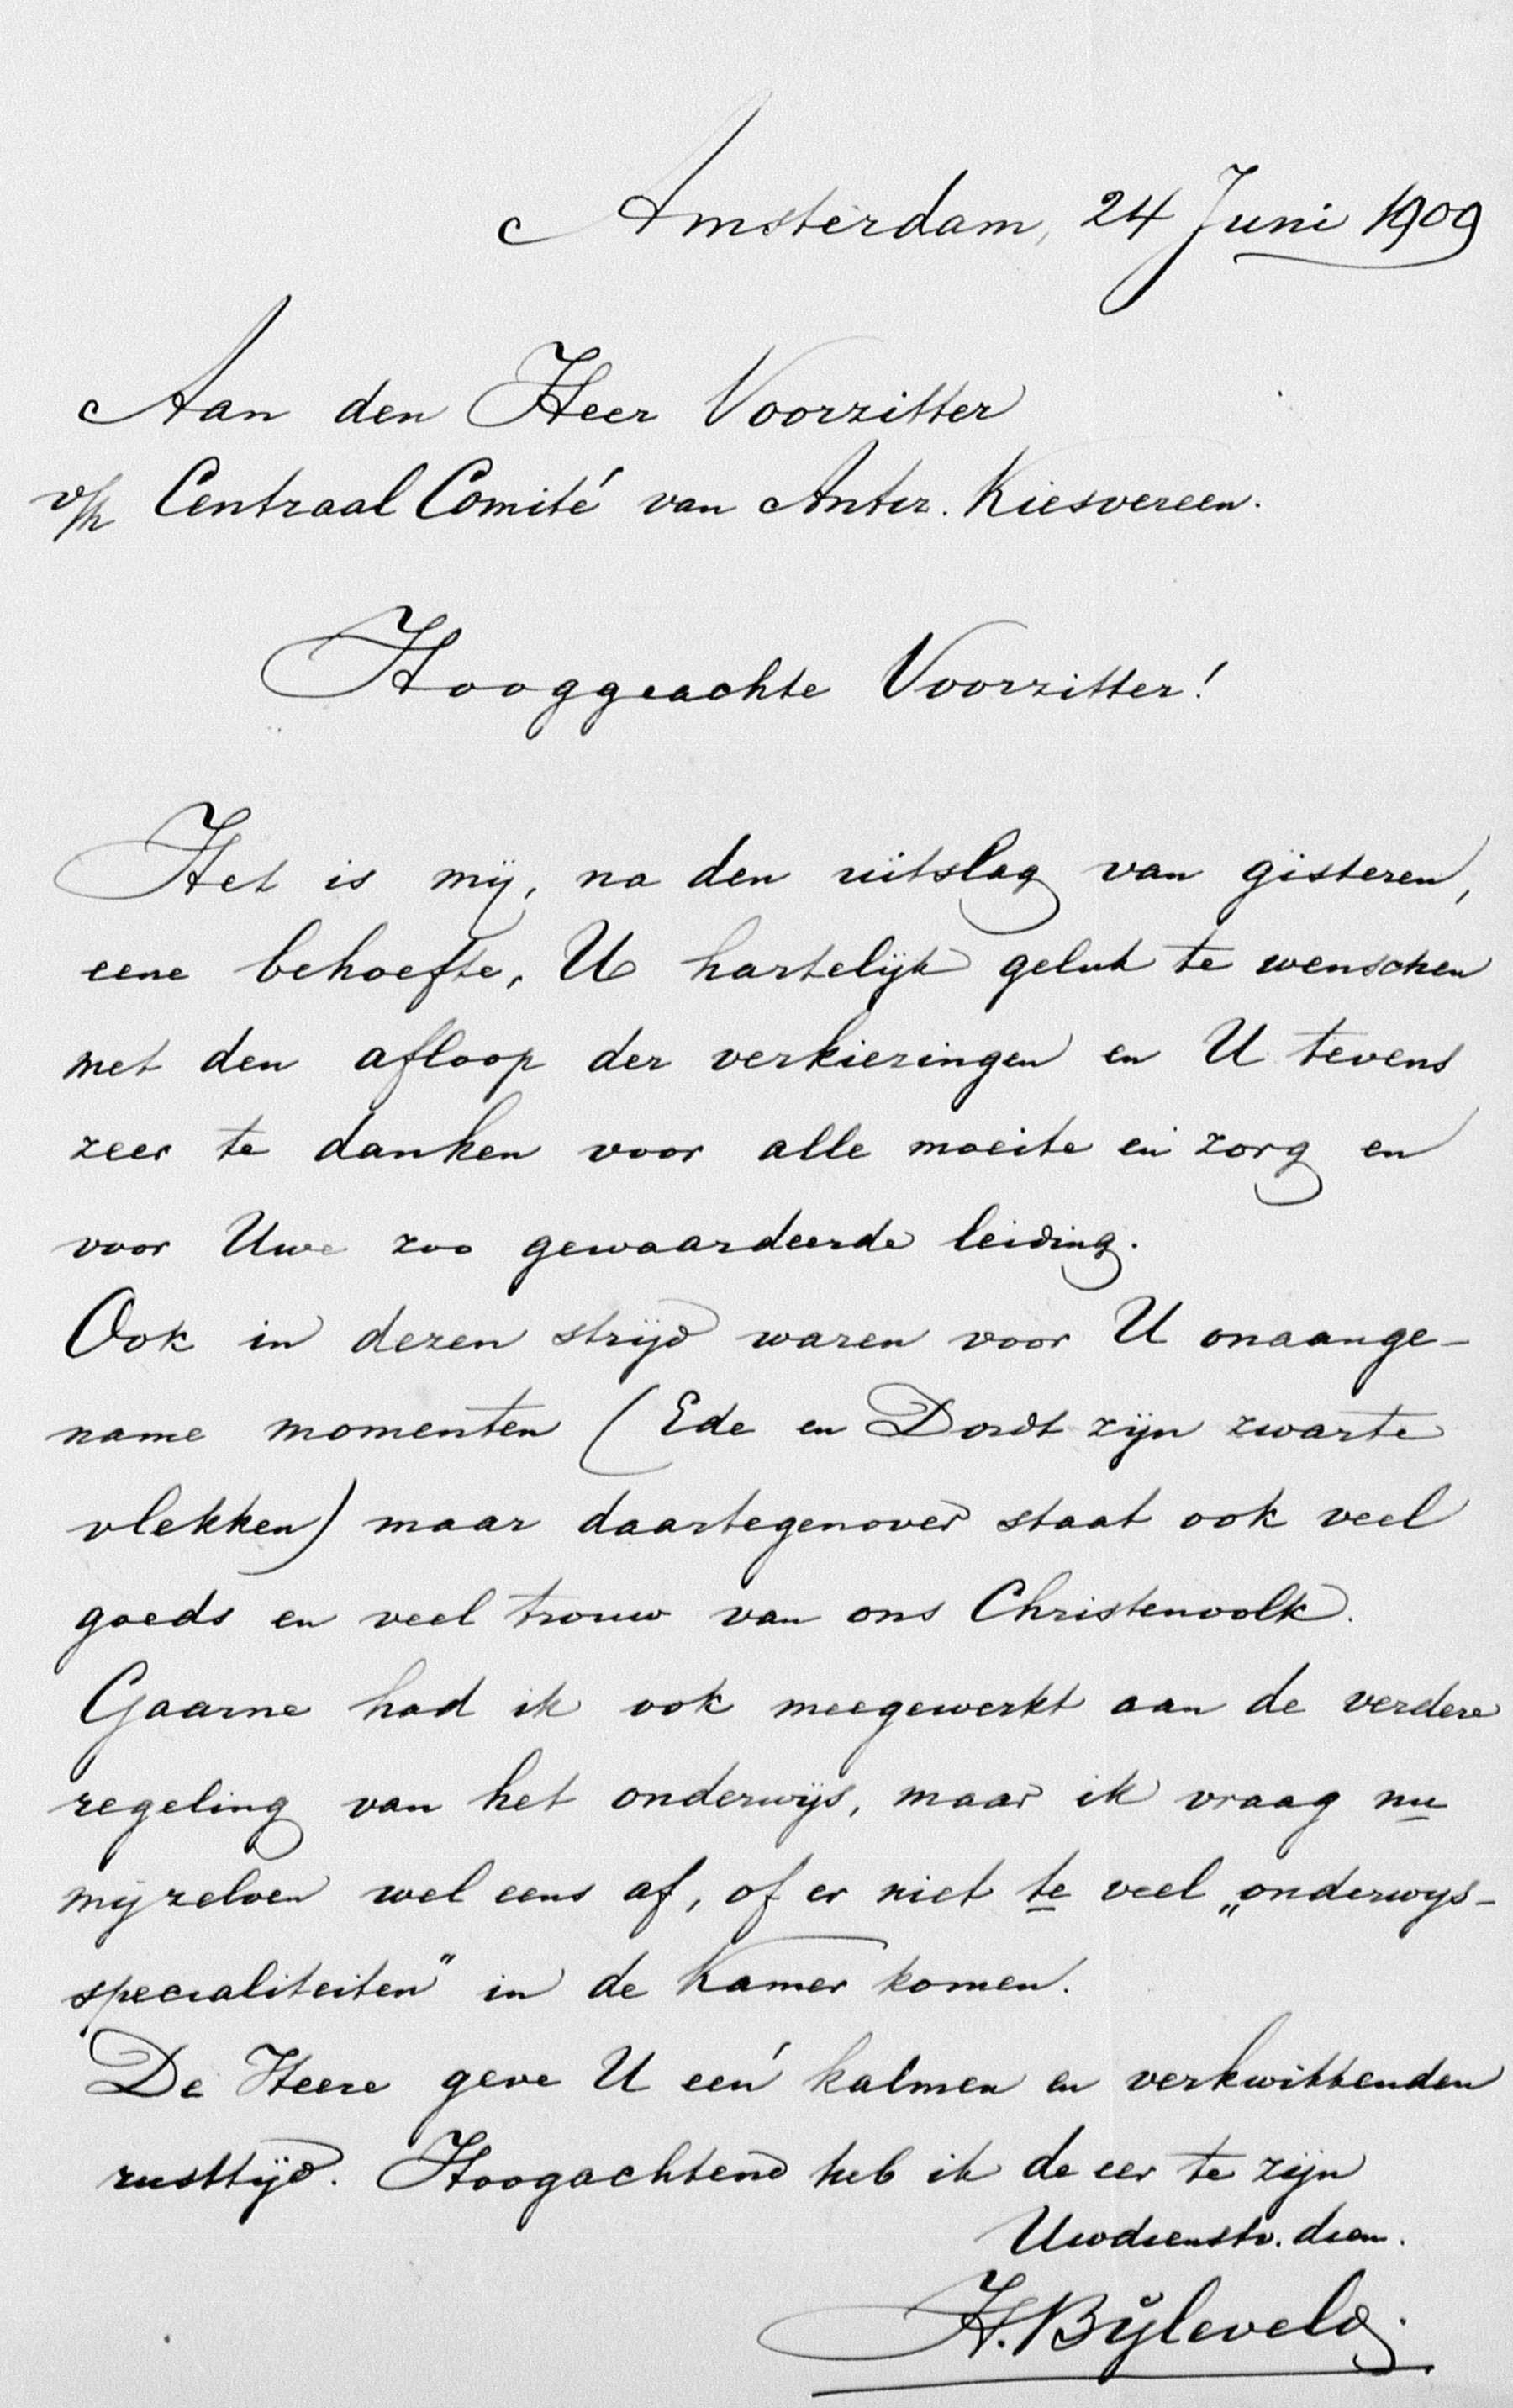 Amsterdam, 24 Juni 1909
Aan den Heer Voorzitter
v/h Centraal Comité van Antir. Kiesvereen.
Hooggeachte Voorzitter!
Het is mij, na den uitslag van gisteren,
eene behoefte, U hartelijk geluk te wenschen
met den afloop der verkiezingen en U tevens
zeer te danken voor alle moeite en zorg en
voor Uwe zoo gewaardeerde leiding.
Ook in dezen strijd waren voor U onaange-
name momenten (Ede en Dordt zijn zwarte
vlekken) maar daartegenover staat ook veel
goeds en veel trouw van ons Christenvolk.
Gaarne had ik ook meegewerkt aan de verdere
regeling van het onderwijs, maar ik vraag nu
mijzelven wel eens af, of er niet te veel „onderwijs-
specialiteiten" in de Kamer komen.
De Heere geve U een kalmen en verkwikkenden
rusttijd. Hoogachtend heb ik de eer te zijn
Uwdienstv. dien.
H. Bijleveld.